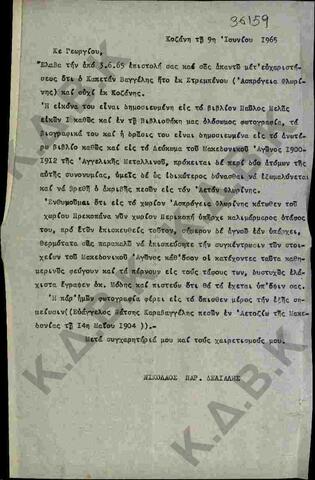 36159
Κοζάνη τῇ 9ῃ Ἰουνίου 1965
Κε Γεωργίου,
Ἔλαβα τήν ἀπό 3.6.65 ἐπιστολή σας καί σᾶς ἀπαντῶ μετ'εὐχαριστή-
σεως ὅτι ὁ Καπετάν Βαγγέλης ἦτο ἐκ Στρεμπένου (Ἀσπρόγεια Φλωρί-
νης) καί οὐχί ἐκ Κοζάνης.
Ἡ εἰκόνα του εἶναι δημοσιευμένη είς τό βιβλίον Παῦλος Μελᾶς
εἰκών Ι καθώς καί ἐν τῇ Βιβλιοθήκῃ μας ὁλόσωμος φωτογραφία, τά
βιογραφικά του καί ἡ δρᾶσις του εἶναι δημοσιευμένα εἰς τό ἀνωτέ-
ρω βιβλίο καθώς καί είς τό Λεύκωμα τοῦ Μακεδονικοῦ Ἀγῶνος 1900-
1912 τῆς Ἀγγελικῆς Μεταλλινοῦ, πρόκειται δέ περί δύο ἀτόμων τῆς
αὐτῆς συνονυμίας, ὑμεῖς δέ ὡς ἰδικώτερος δύνασθαι νά ἐξωμαλύνεται
καί νά βρεθῇ ὁ ἀκριβής πεσών είς τόν Ἀετόν Φλωρίνης.
Ἐνθυμοῦμαι ὅτι εἰς τό χωρίον Ἀσπρόγειας κάτωθεν τοῦ
χωρίου Πρεκοπάνα νῦν χωρίον Περικοπή ὑπῆρχε καλιμάρμαρος ὁτάφος
του, πρό ἐτῶν ἐπισκευθείς τοῦτον, σήμερον δέ ἀγνοῶ ἐάν ὑπάρχει,
θερμότατα σᾶς παρακαλῶ νά ἐπισπεύσητε τήν συγκέντρωσιν τῶν στοι-
χείων τοῦ Μακεδονικοῦ Ἀγῶνος καθ'ὅσον οἱ κατέχοντες ταῦτα καθη-
μερινῶς φεύγουν καί τά πέρνουν είς τούς τάφους των, δυστυχῶς ἐλά-
χιστα ἔγραφεν ὁκ. Μόδης καί πιστεύω ὅτι θά τά ἔχεται ὑπ'ὄψιν σας.
Ἡ πάρ'ἡμῶν φωτογραφία φέρει εἰς τό ὄπισθεν μέρος τήν ἐξῆς ση-
μείωσιν(Εὐάγγελος Νάτσης Καραβαγγέλης πεσών ἐν Ἀετοζίω τῆς Μακε-
δονίας τῇ 14ῃ Μαΐου 1904 )).-
Μετά συγχαρητήριά μου καί τούς χαιρετισμούς μου.
ΝΙΚΟΛΑΟΣ ΠΑΡ. ΔΕΛΙΑΛΗΣ
Κ.Δ.Β.Κ